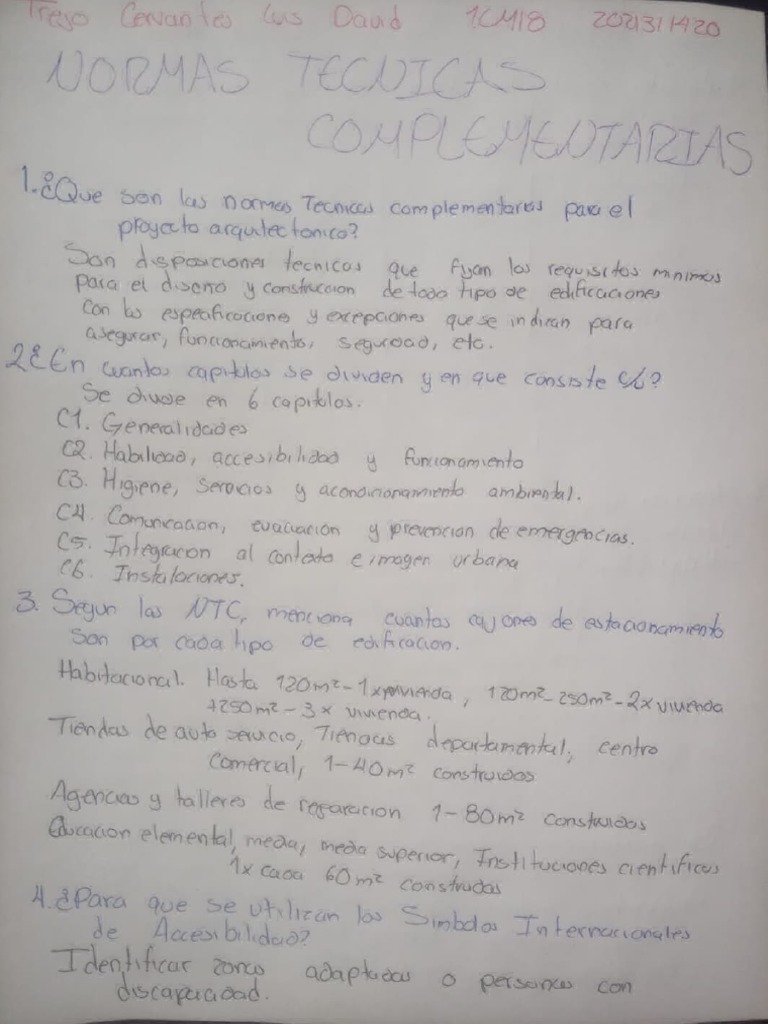 Trejo Cervantes Luis David 1CM18 2021311420
NORMAS TECNICAS
COMPLEMENTARIAS
1.¿Que son las normas Tecnicas complementarias para el
proyecto arquitectonico?
Son disposiciones tecnicas que fijan los requisitos minimos
para el diseño y construccion de todo tipo de edificaciones
con las especificaciones y excepciones que se indican para
asegurar, funcionamiento, seguridad, etc.
2¿En cuantos capitulos se dividen y en que consiste c/u?
Se divide en 6 capitulos.
C1. Generalidades
C2. Habilidad, accesibilidad y funcionamiento
C3. Higiene, servicios y acondicionamiento ambiental.
C4. Comunicacion, evacuacion y prevencion de emergencias.
C5. Integracion al contexto e imagen urbana
C6. Instalaciones.
3. Segun las NTC, menciona cuantos cajones de estacionamiento
son por cada tipo de edificacion.
Habitacional. Hasta 120m²-1xvivienda, 120m²-250m²-2x vivienda
+250m²-3x vivienda.
Tiendas de auto servicio, Tiendas departamental, centro
comercial, 1-40m² construidos
Agencias y talleres de reparacion 1-80m² construidos
Educacion elemental, media, media superior, Instituciones cientificas
1x cada 60m² construidas
4.¿Para que se utilizan los Simbolos Internacionales
de Accesibilidad?
Identificar zonas adaptadas o personas con
discapacidad.